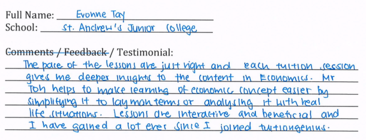 Full Name: Evonne Tay
School: St. Andrew's Junior College
Comments / Feedback / Testimonial:
The pace of the lessons are just right and each tuition session
gives me deeper insights to the content in Economics. Mr
Toh helps to make learning of economic concept easier by
simplifying it to layman terms or analysing it with real
life situations. Lessons are interactive and beneficial and
I have gained a lot ever since I joined tuitiongenius.